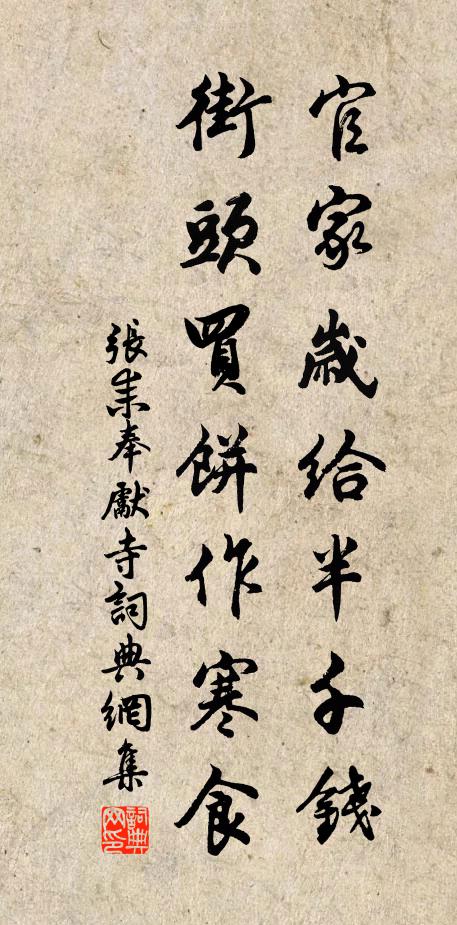 官家歲給半千錢
街頭買餅作寒食
張耒奉獻寺詞典網集
詞典網印